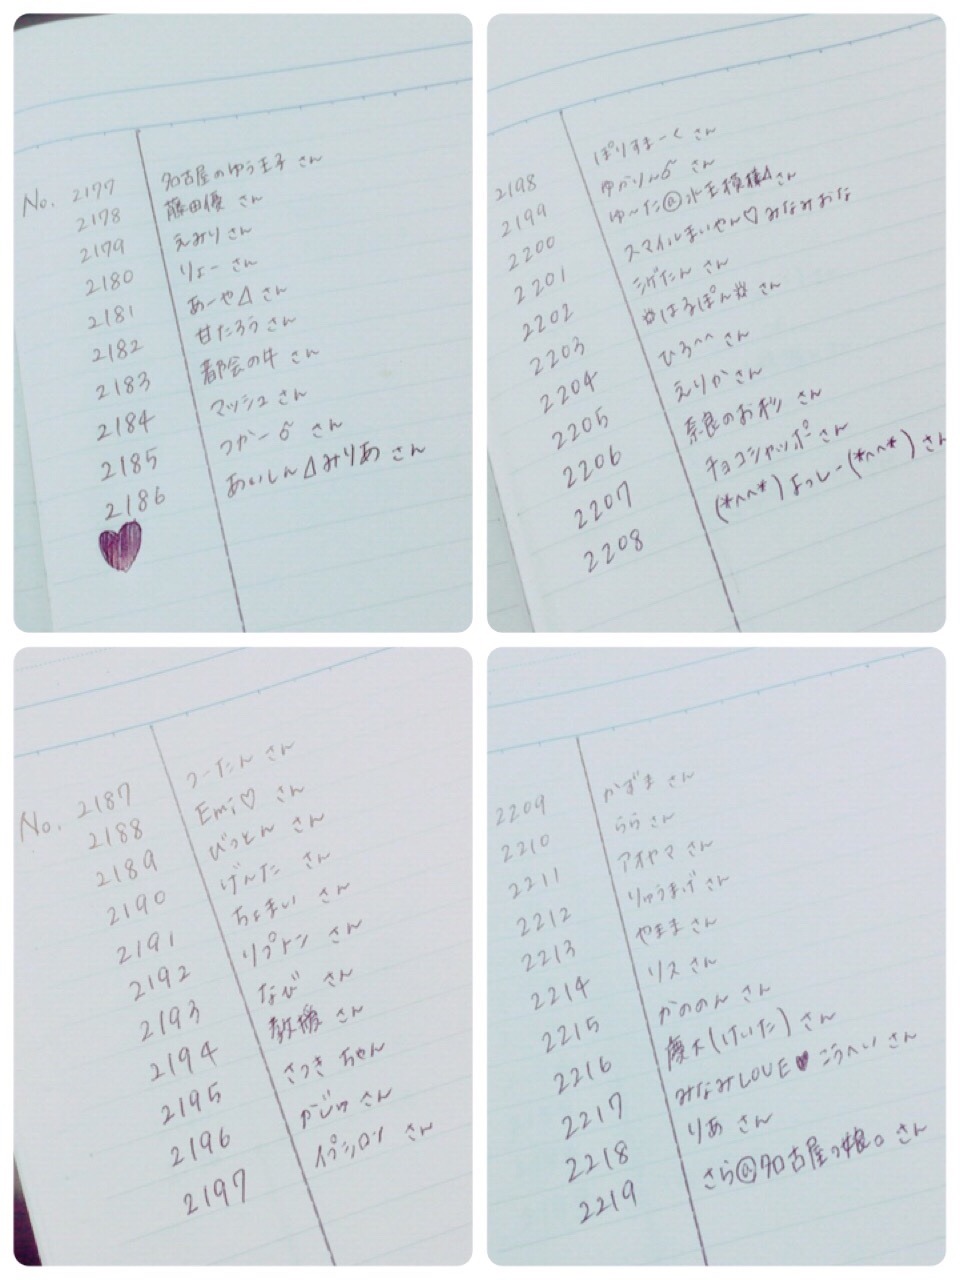 No. 2177 名古屋のゆう王子 さん
2178 藤田優 さん
2179 えみり さん
2180 りょー さん
2181 あーや⊿ さん
2182 甘たろう さん
2183 都会の牛 さん
2184 マッシュ さん
2185 つかーδ さん
2186 あいしん⊿みりあ さん
2198 ぱりすまーく さん
2199 ゆかりんδ さん
2200 ゆ〜た@水玉模様⊿さん
2201 スマイルまいやん♡みなみおな
2202 さん
2203 はるぽん さん
2204 ひろ^^ さん
2205 えりか さん
2206 奈良のお杉 さん
2207 チョコシャッポ さん
2208 (*^^*)よっしー(*^^*) さん
No. 2187 つーたん さん
2188 Emi♡ さん
2189 びっとん さん
2190 げんた さん
2191 ちょまい さん
2192 リプトン さん
2193 なび さん
2194 さん
2195 さつき ちゃん
2196 かじゅ さん
2197 イプシロン さん
2209 かずま さん
2210 らら さん
2211 アオヤマ さん
2212 りゅうまげ さん
2213 やまま さん
2214 リス さん
2215 かののん さん
2216 慶太(けいた) さん
2217 みなみLOVE♥こうへい さん
2218 りあ さん
2219 さら@名古屋っ娘。さん